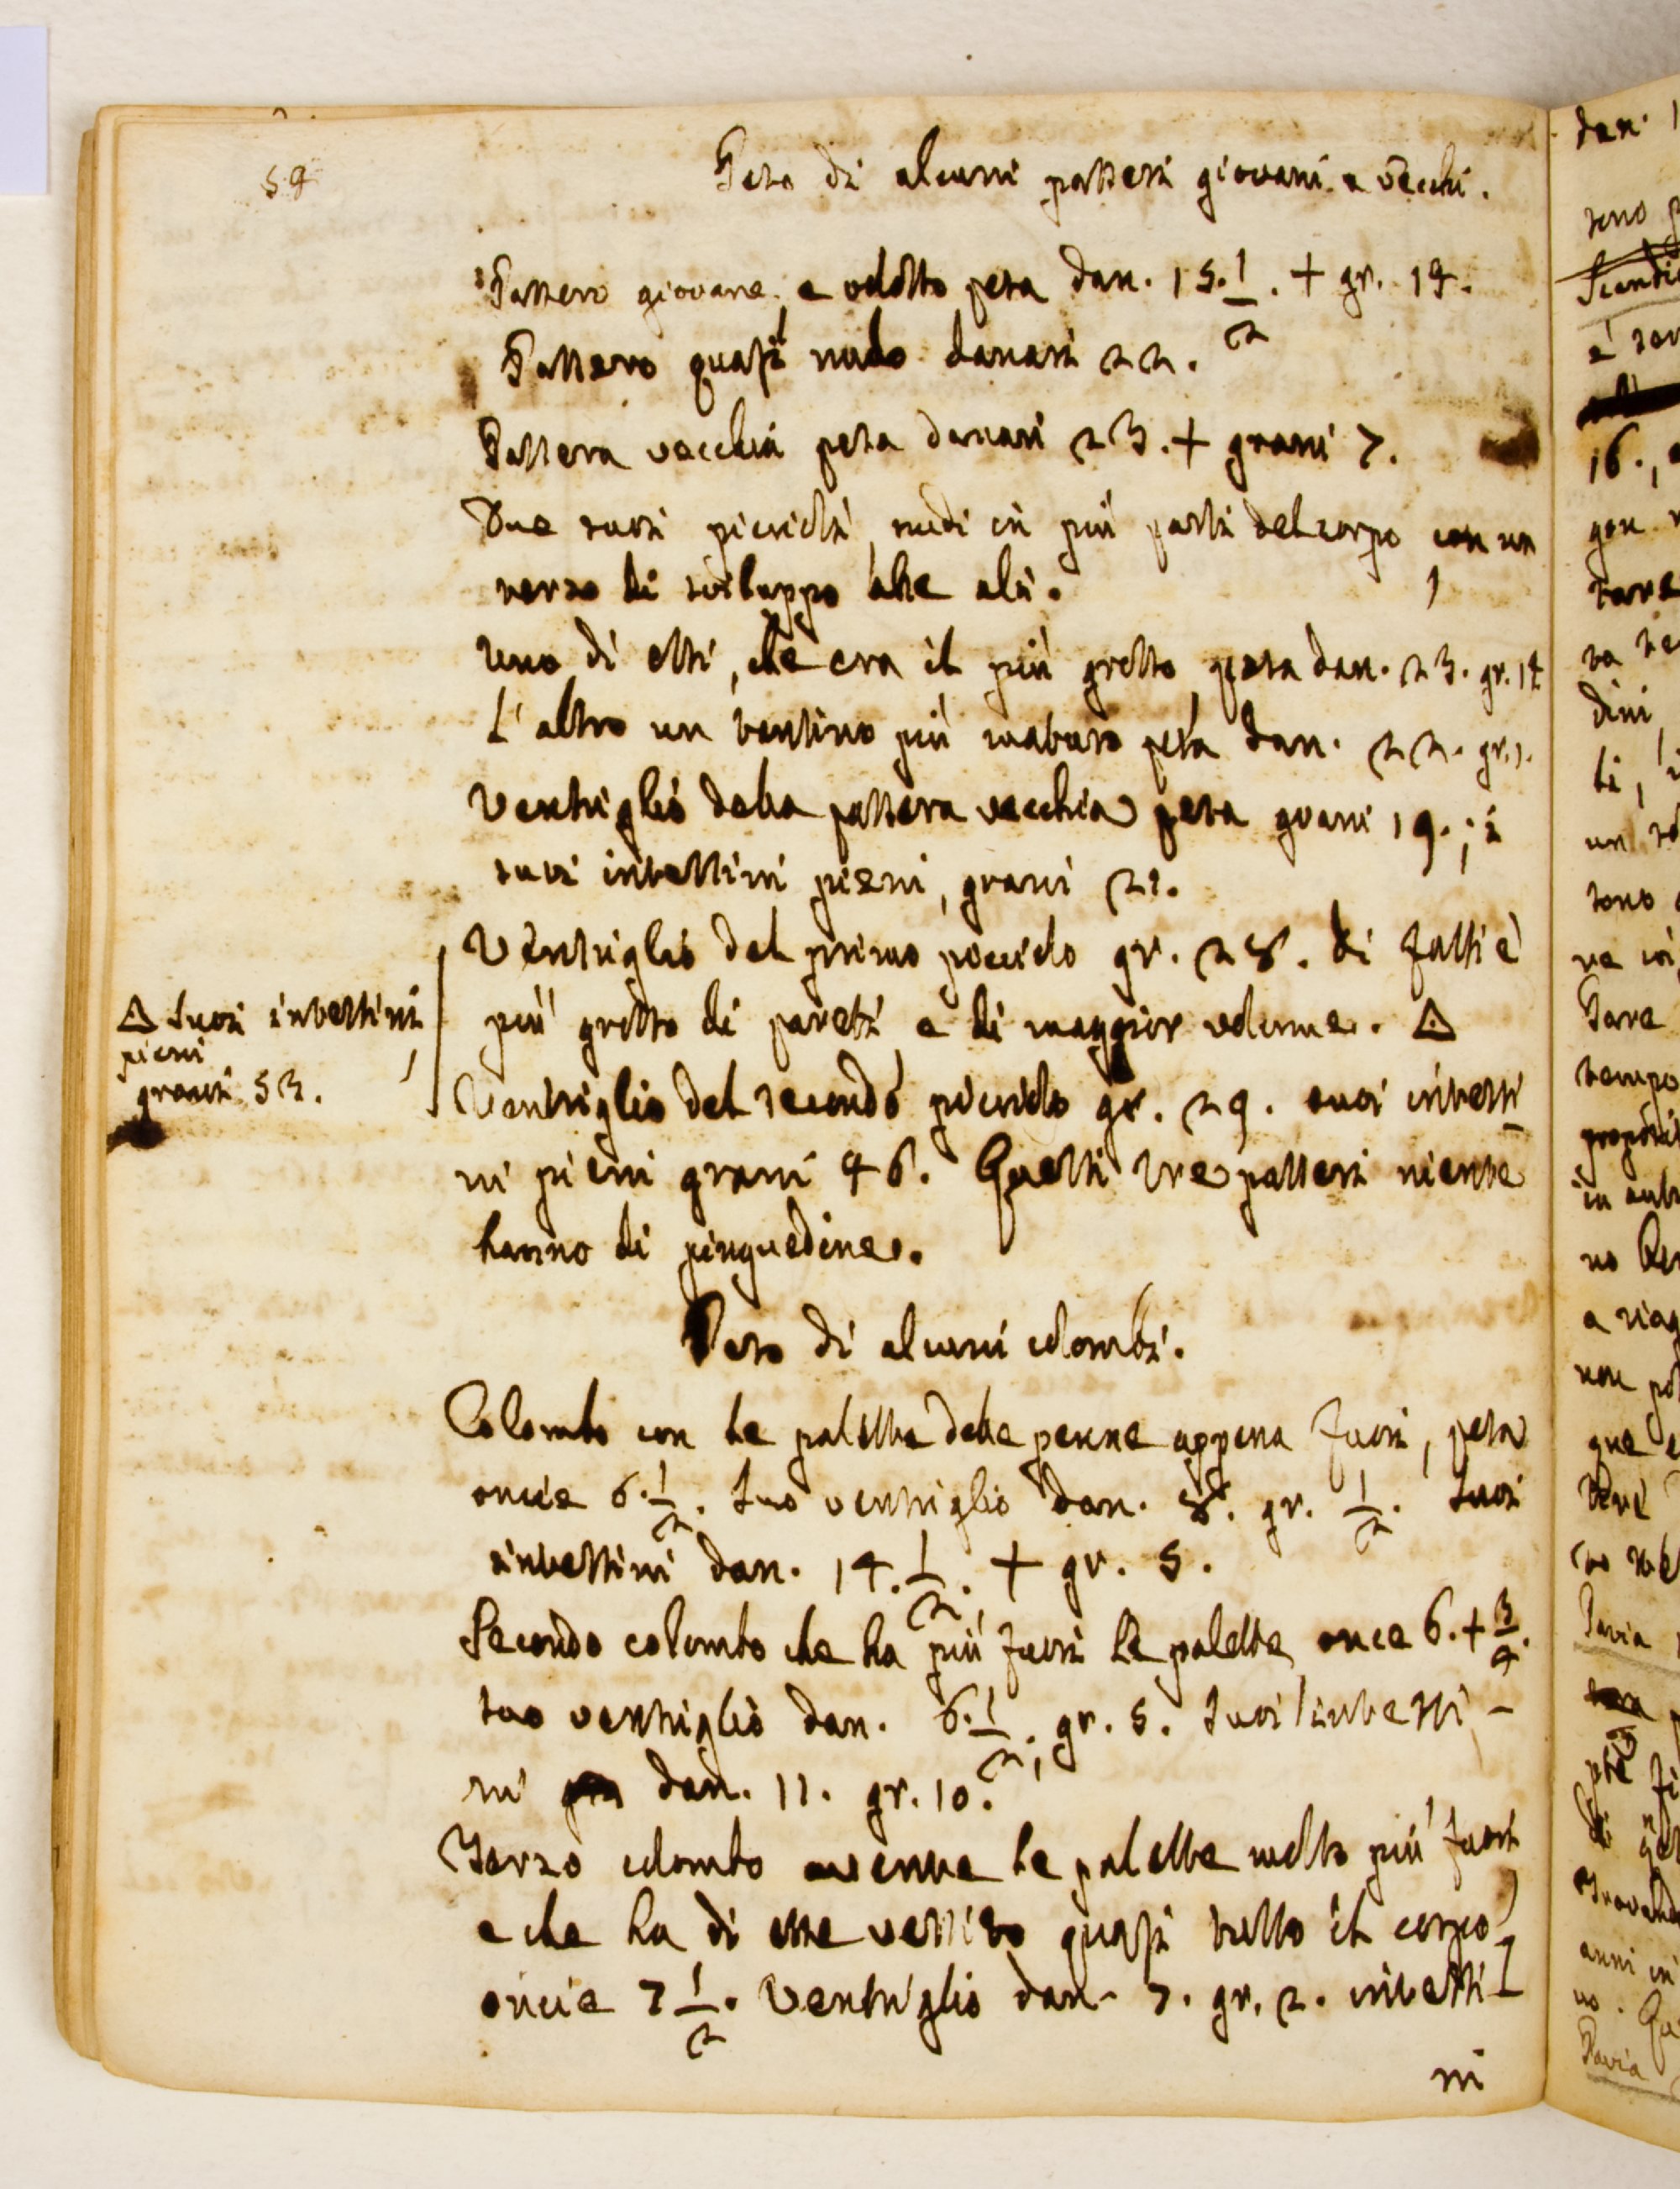 54
Peso di alcuni passeri giovani e vecchi.
Passero giovane e ridotto pesa dan. 15. 1/2. + gr. 14.
Passero quasi nudo danari 22.
Passera vecchia pesa danari 23. + grani 7.
Due suoi piccioli, nudi in più parti del corpo, con un
verso di sviluppo alle ali.
Uno di essi, che era il più grosso pesa dan. 23. gr. 14
L'altro un tantino più pesa dan. 22. gr. 1.
Ventriglio della passera vecchia pesa grani 19.; i
suoi intestini pieni, grani 21.
Ventriglio del primo picciolo gr. 28. di fatti è
più grosso di pareti e di maggior volume. △
△ Suoi intestini
pieni,
grani 53.
Ventriglio del secondo picciolo gr. 29. suoi intesti
ni pieni grani 46. Questi tre passeri niente
hanno di pinguedine.
Peso di alcuni colombi.
Colombo con le palette delle penne appena fuori, pesa
oncie 6. 1/2. Suo ventriglio dan. 8. gr. 1/2. Suoi
intestini dan. 14. 1/2. + gr. 5.
Secondo colombo che ha più fuori le palette, once 6. + 3/4.
suo ventriglio dan. 6. 1/2, gr. 5. Suoi intesti-
ni dan. 11. gr. 10.
Terzo colombo avente le palette molto più fuori,
e che ha di esse vestito quasi tutto il corpo,
oncie 7 1/2. Ventriglio dan. 7. gr. 2. intesti-
ni